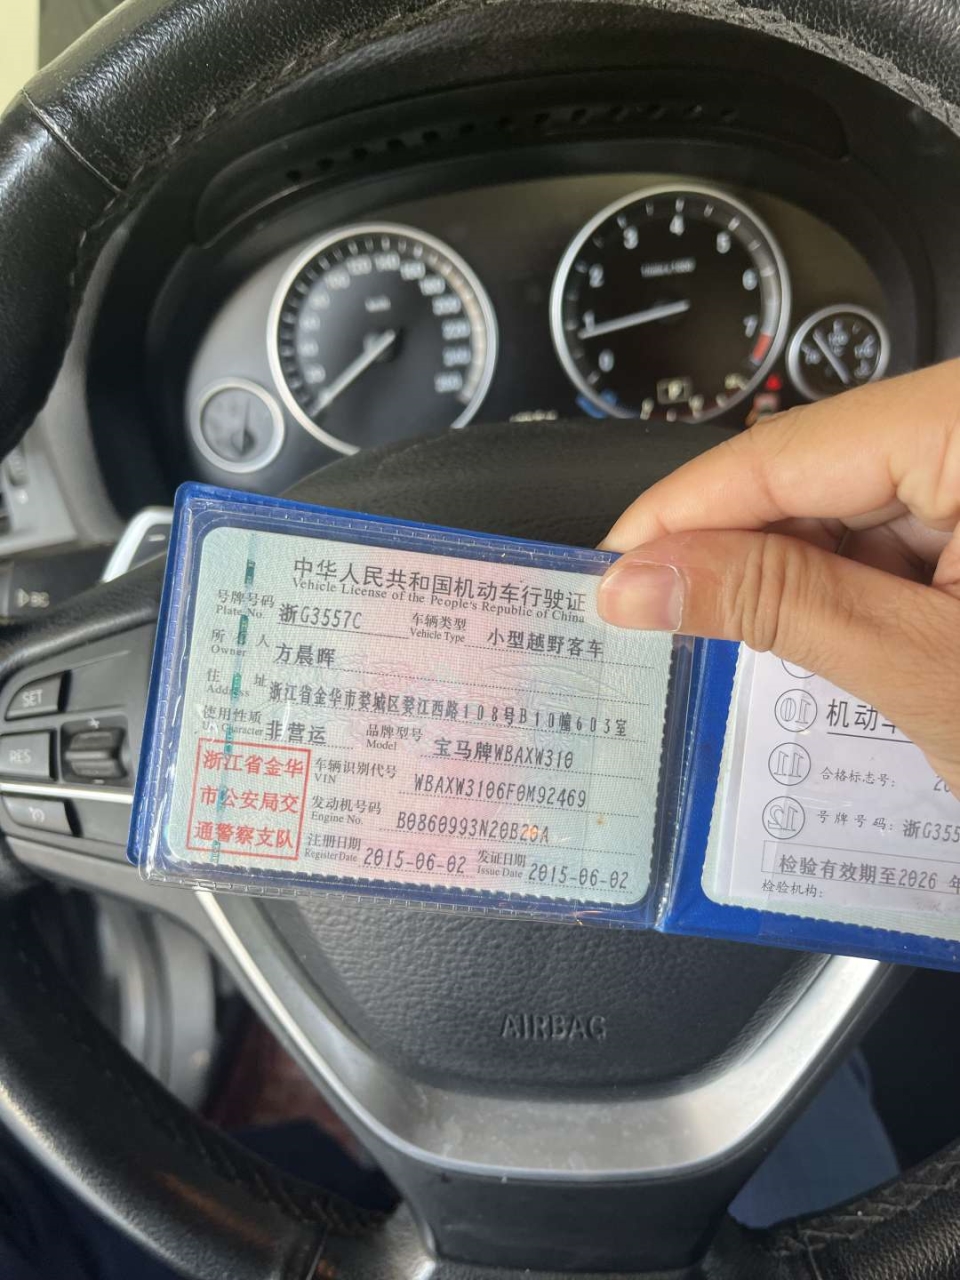 1
2
3
4
6
7
0
P
SET
RES
中华人民共和国机动车行驶证
Vehicle License of the People's Republic of China
号牌号码 浙G3557C 车辆类型 小型越野客车
Plate No. Vehicle Type
所有人 方晨晖
Owner
住址 浙江省金华市婺城区婺江西路108号B10幢603室
Address
使用性质 非营运 品牌型号 宝马牌WBAXW310
Use Character Model
浙江省金华
市公安局交
通警察支队
车辆识别代号 WBAXW3106F0M92469
VIN
发动机号码 B0860993N20B20A
Engine No.
注册日期 2015-06-02 发证日期 2015-06-02
Register Date Issue Date
10 机动车
11 合格标志号: 20
12 号牌号码: 浙G355
检验有效期至2026 年
检验机构:
AIRBAG